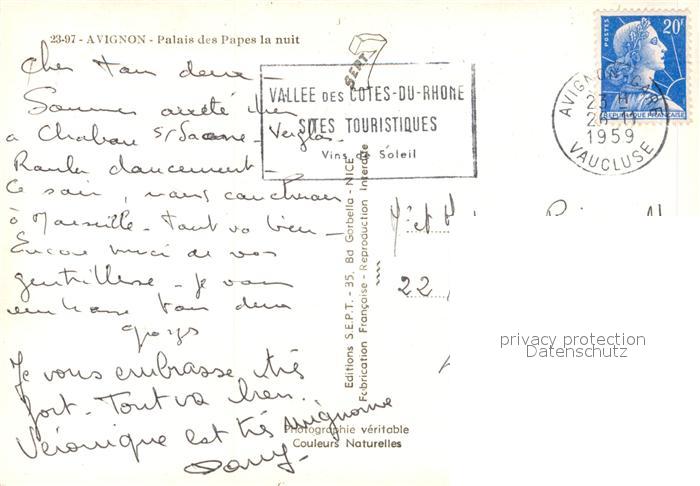 23-97 - AVIGNON - Palais des Papes la nuit
SEPT
VALLEE DES COTES-DU-RHONE
SITES TOURISTIQUES
Vins de Soleil
POSTES
20F
REPUBLIQUE FRANÇAISE
AVIGNON GARE
23 H
1959
VAUCLUSE
Cher tous deux -
Sommes arrêté hier
a Chalon s/ Saone - Verglas.
Roulé doucement -
Ce soir, nous coucherons
à Marseille - tout va bien -
Encore merci de vos
gentillesse - je vous
embrasse tous deux
22
Je vous embrasse très
fort - Tout va bien.
Véronique est très mignonne
Editions S.E.P.T. - 35, Bd Gorbella - NICE
Fabrication Française - Reproduction Interdite
Photographie véritable
Couleurs Naturelles
privacy protection
Datenschutz